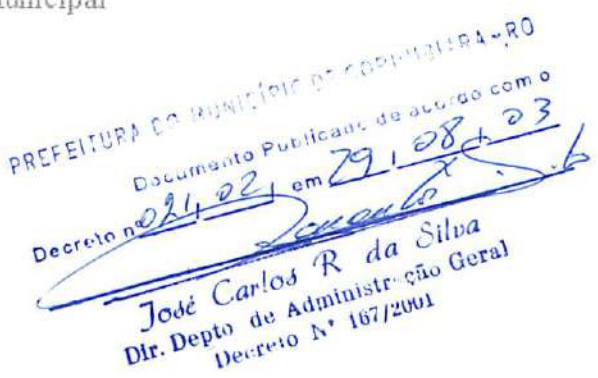 PREFEITURA DO MUNICÍPIO DE CORUMBIARA-RO
Documento Publicado de acordo com o
Decreto nº 021, 02, em 29, 08, 03
José Carlos R da Silva
Dir. Depto de Administração Geral
Decreto Nº 167/2001